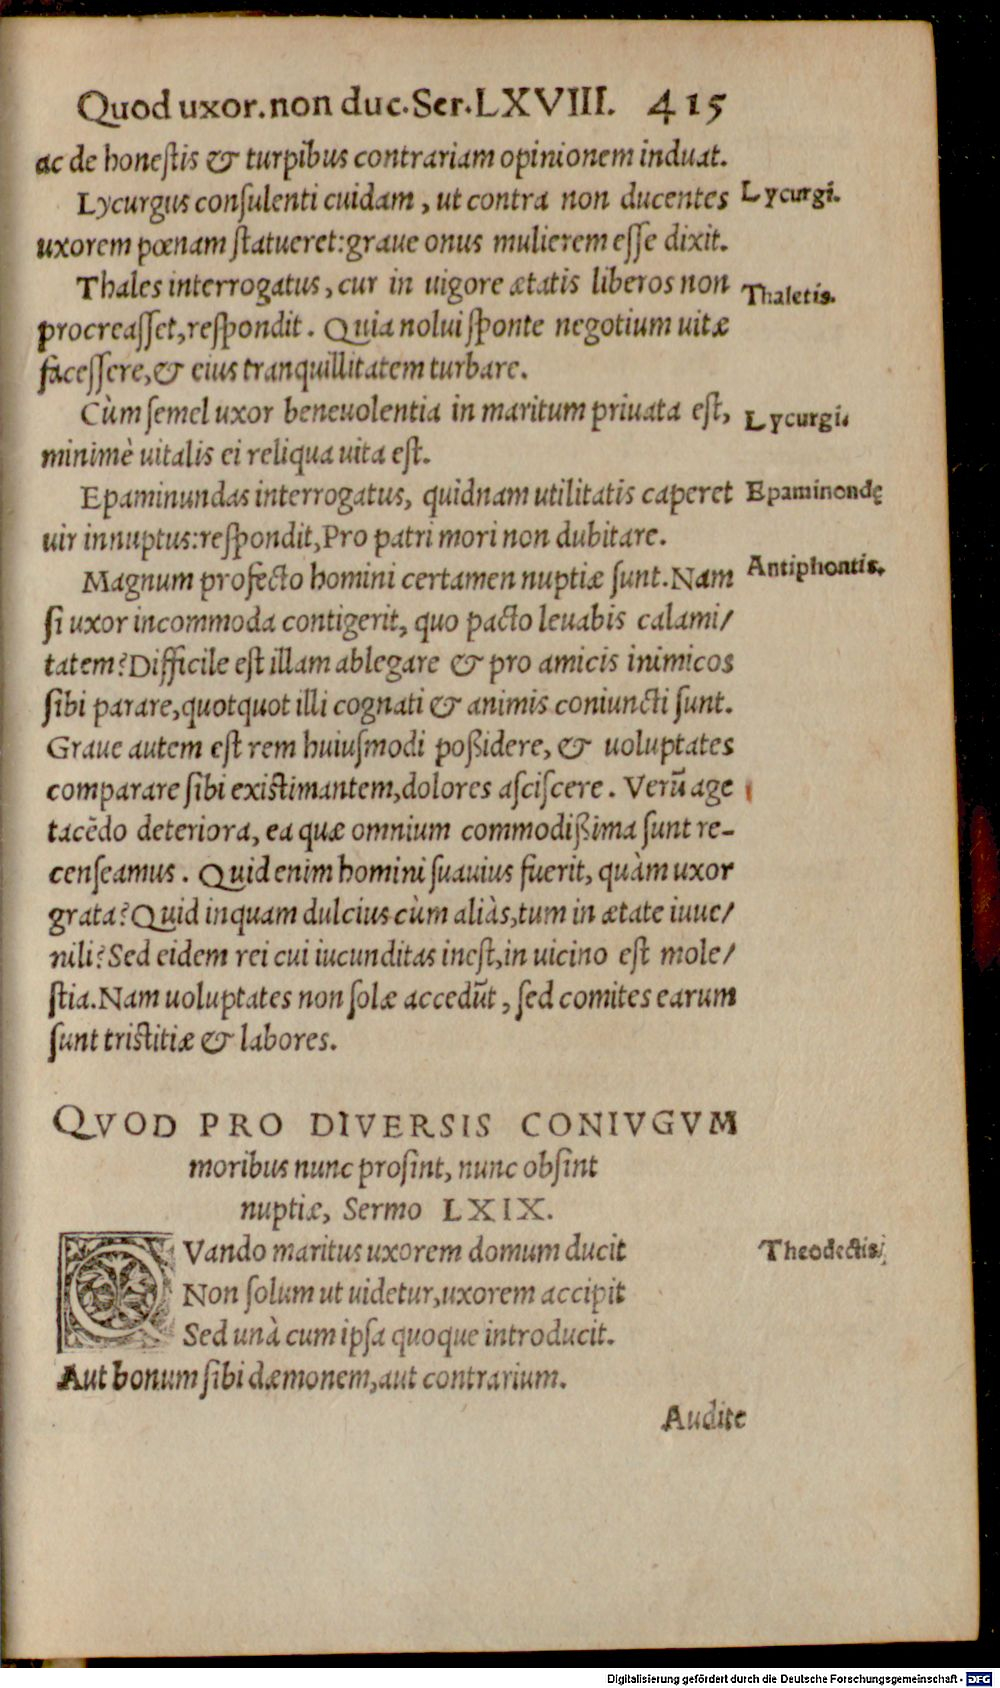 Quod uxor. non duc. Ser. LXVIII. 415
ac de honestis & turpibus contrariam opinionem induat.
Lycurgus consulenti cuidam, ut contra non ducentes
Lycurgi.
uxorem pœnam statueret: graue onus mulierem esse dixit.
Thales interrogatus, cur in uigore ætatis liberos non
Thaletis.
procreasset, respondit. Quia nolui sponte negotium uitæ
facessere, & eius tranquillitatem turbare.
Cùm semel uxor beneuolentia in maritum priuata est,
Lycurgi.
minimè uitalis ei reliqua uita est.
Epaminundas interrogatus, quidnam utilitatis caperet
Epaminondę
uir innuptus: respondit, Pro patri mori non dubitare.
Magnum profecto homini certamen nuptiæ sunt. Nam
Antiphontis.
si uxor incommoda contigerit, quo pacto leuabis calami/
tatem? Difficile est illam ablegare & pro amicis inimicos
sibi parare, quotquot illi cognati & animis coniuncti sunt.
Graue autem est rem huiusmodi poßidere, & uoluptates
comparare sibi existimantem, dolores asciscere. Verũ age
tacēdo deteriora, ea quæ omnium commodißima sunt re-
censeamus. Quid enim homini suauius fuerit, quàm uxor
grata? Quid inquam dulcius cùm aliàs, tum in ætate iuue/
nili? Sed eidem rei cui iucunditas inest, in uicino est mole/
stia. Nam uoluptates non solæ accedũt, sed comites earum
sunt tristitiæ & labores.
QVOD PRO DIVERSIS CONIVGVM
moribus nunc prosint, nunc obsint
nuptiæ, Sermo LXIX.
QVando maritus uxorem domum ducit
Theodectis
Non solum ut uidetur, uxorem accipit
Sed unà cum ipsa quoque introducit.
Aut bonum sibi dæmonem, aut contrarium.
Audite
Digitalisierung gefördert durch die Deutsche Forschungsgemeinschaft - DFG